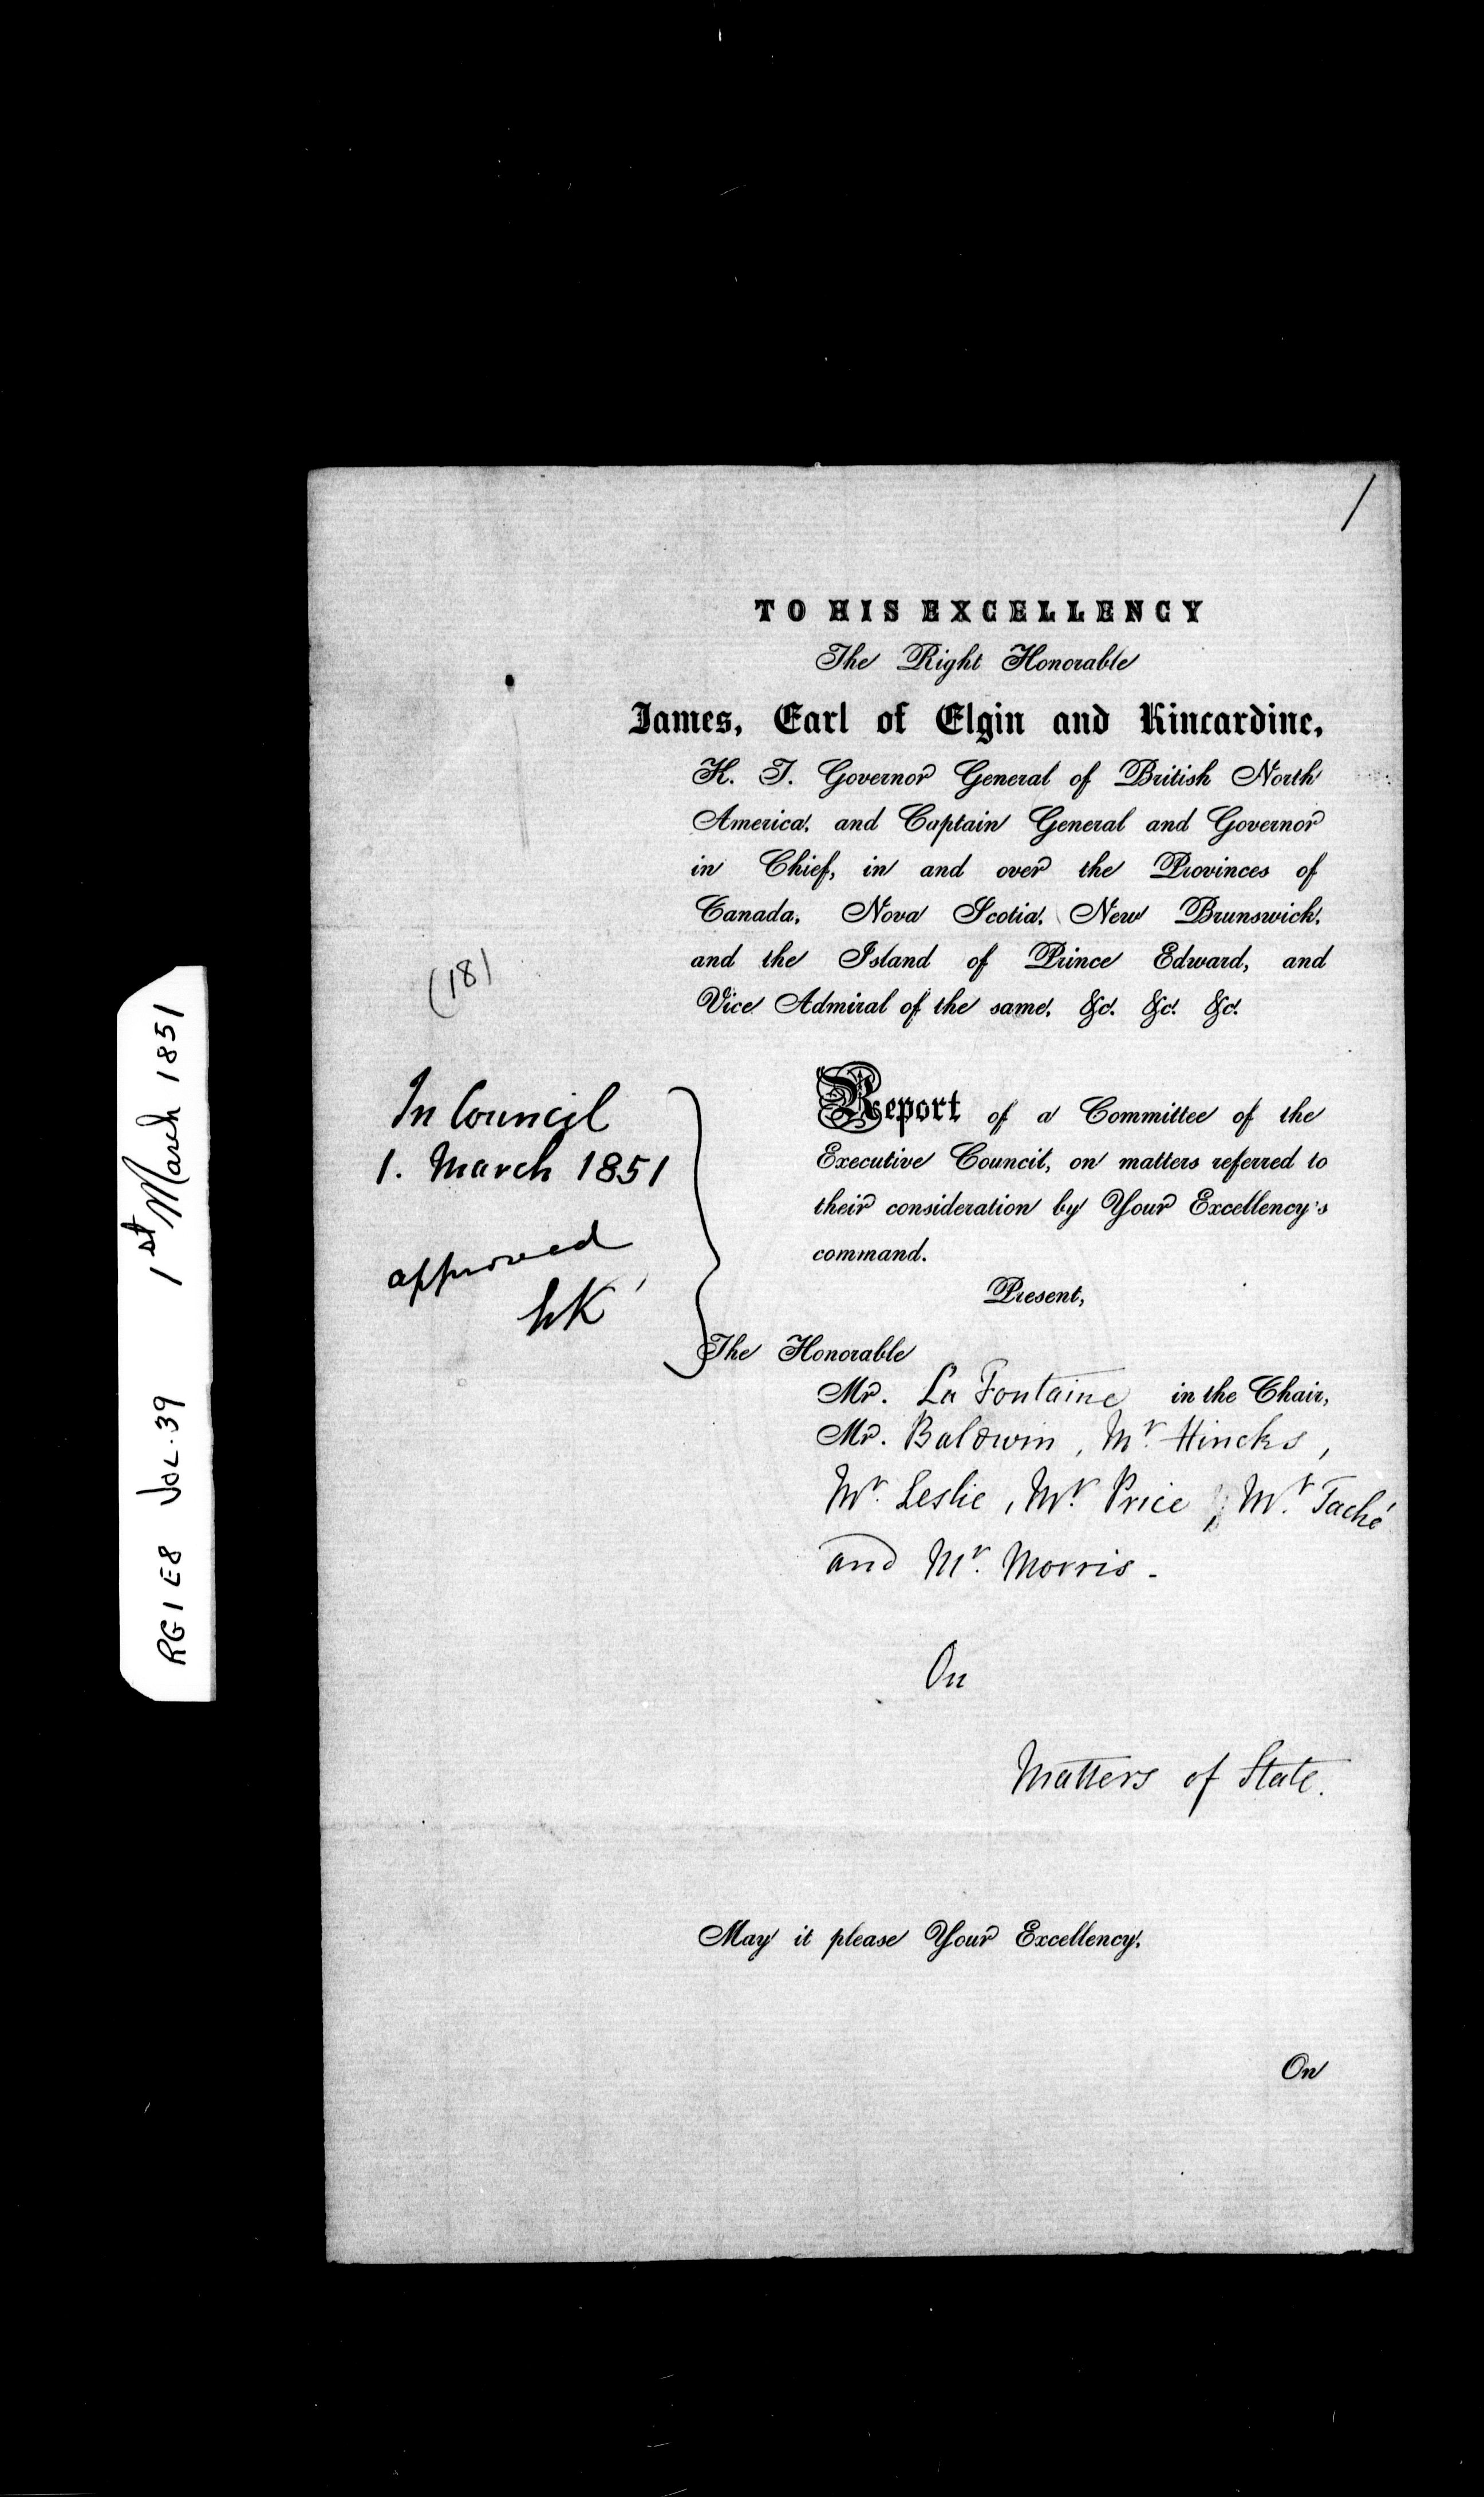 RG1 E8 Vol. 39 1st March 1851
/
TO HIS EXCELLENCY
The Right Honorable
James, Earl of Elgin and Kincardine,
K. T. Governor General of British North
America, and Captain General and Governor
in Chief, in and over the Provinces of
Canada, Nova Scotia, New Brunswick,
and the Island of Prince Edward, and
Vice Admiral of the same, &c. &c. &c.
(18)
In Council
1. March 1851
approved
Report of a Committee of the
Executive Council, on matters referred to
their consideration by Your Excellency's
command.
Present,
The Honorable
Mr. La Fontaine in the Chair,
Mr. Baldwin, Mr. Hincks,
Mr. Leslie, Mr. Price, Mr. Taché
and Mr. Morris -
On
Matters of State.
May it please Your Excellency,
On